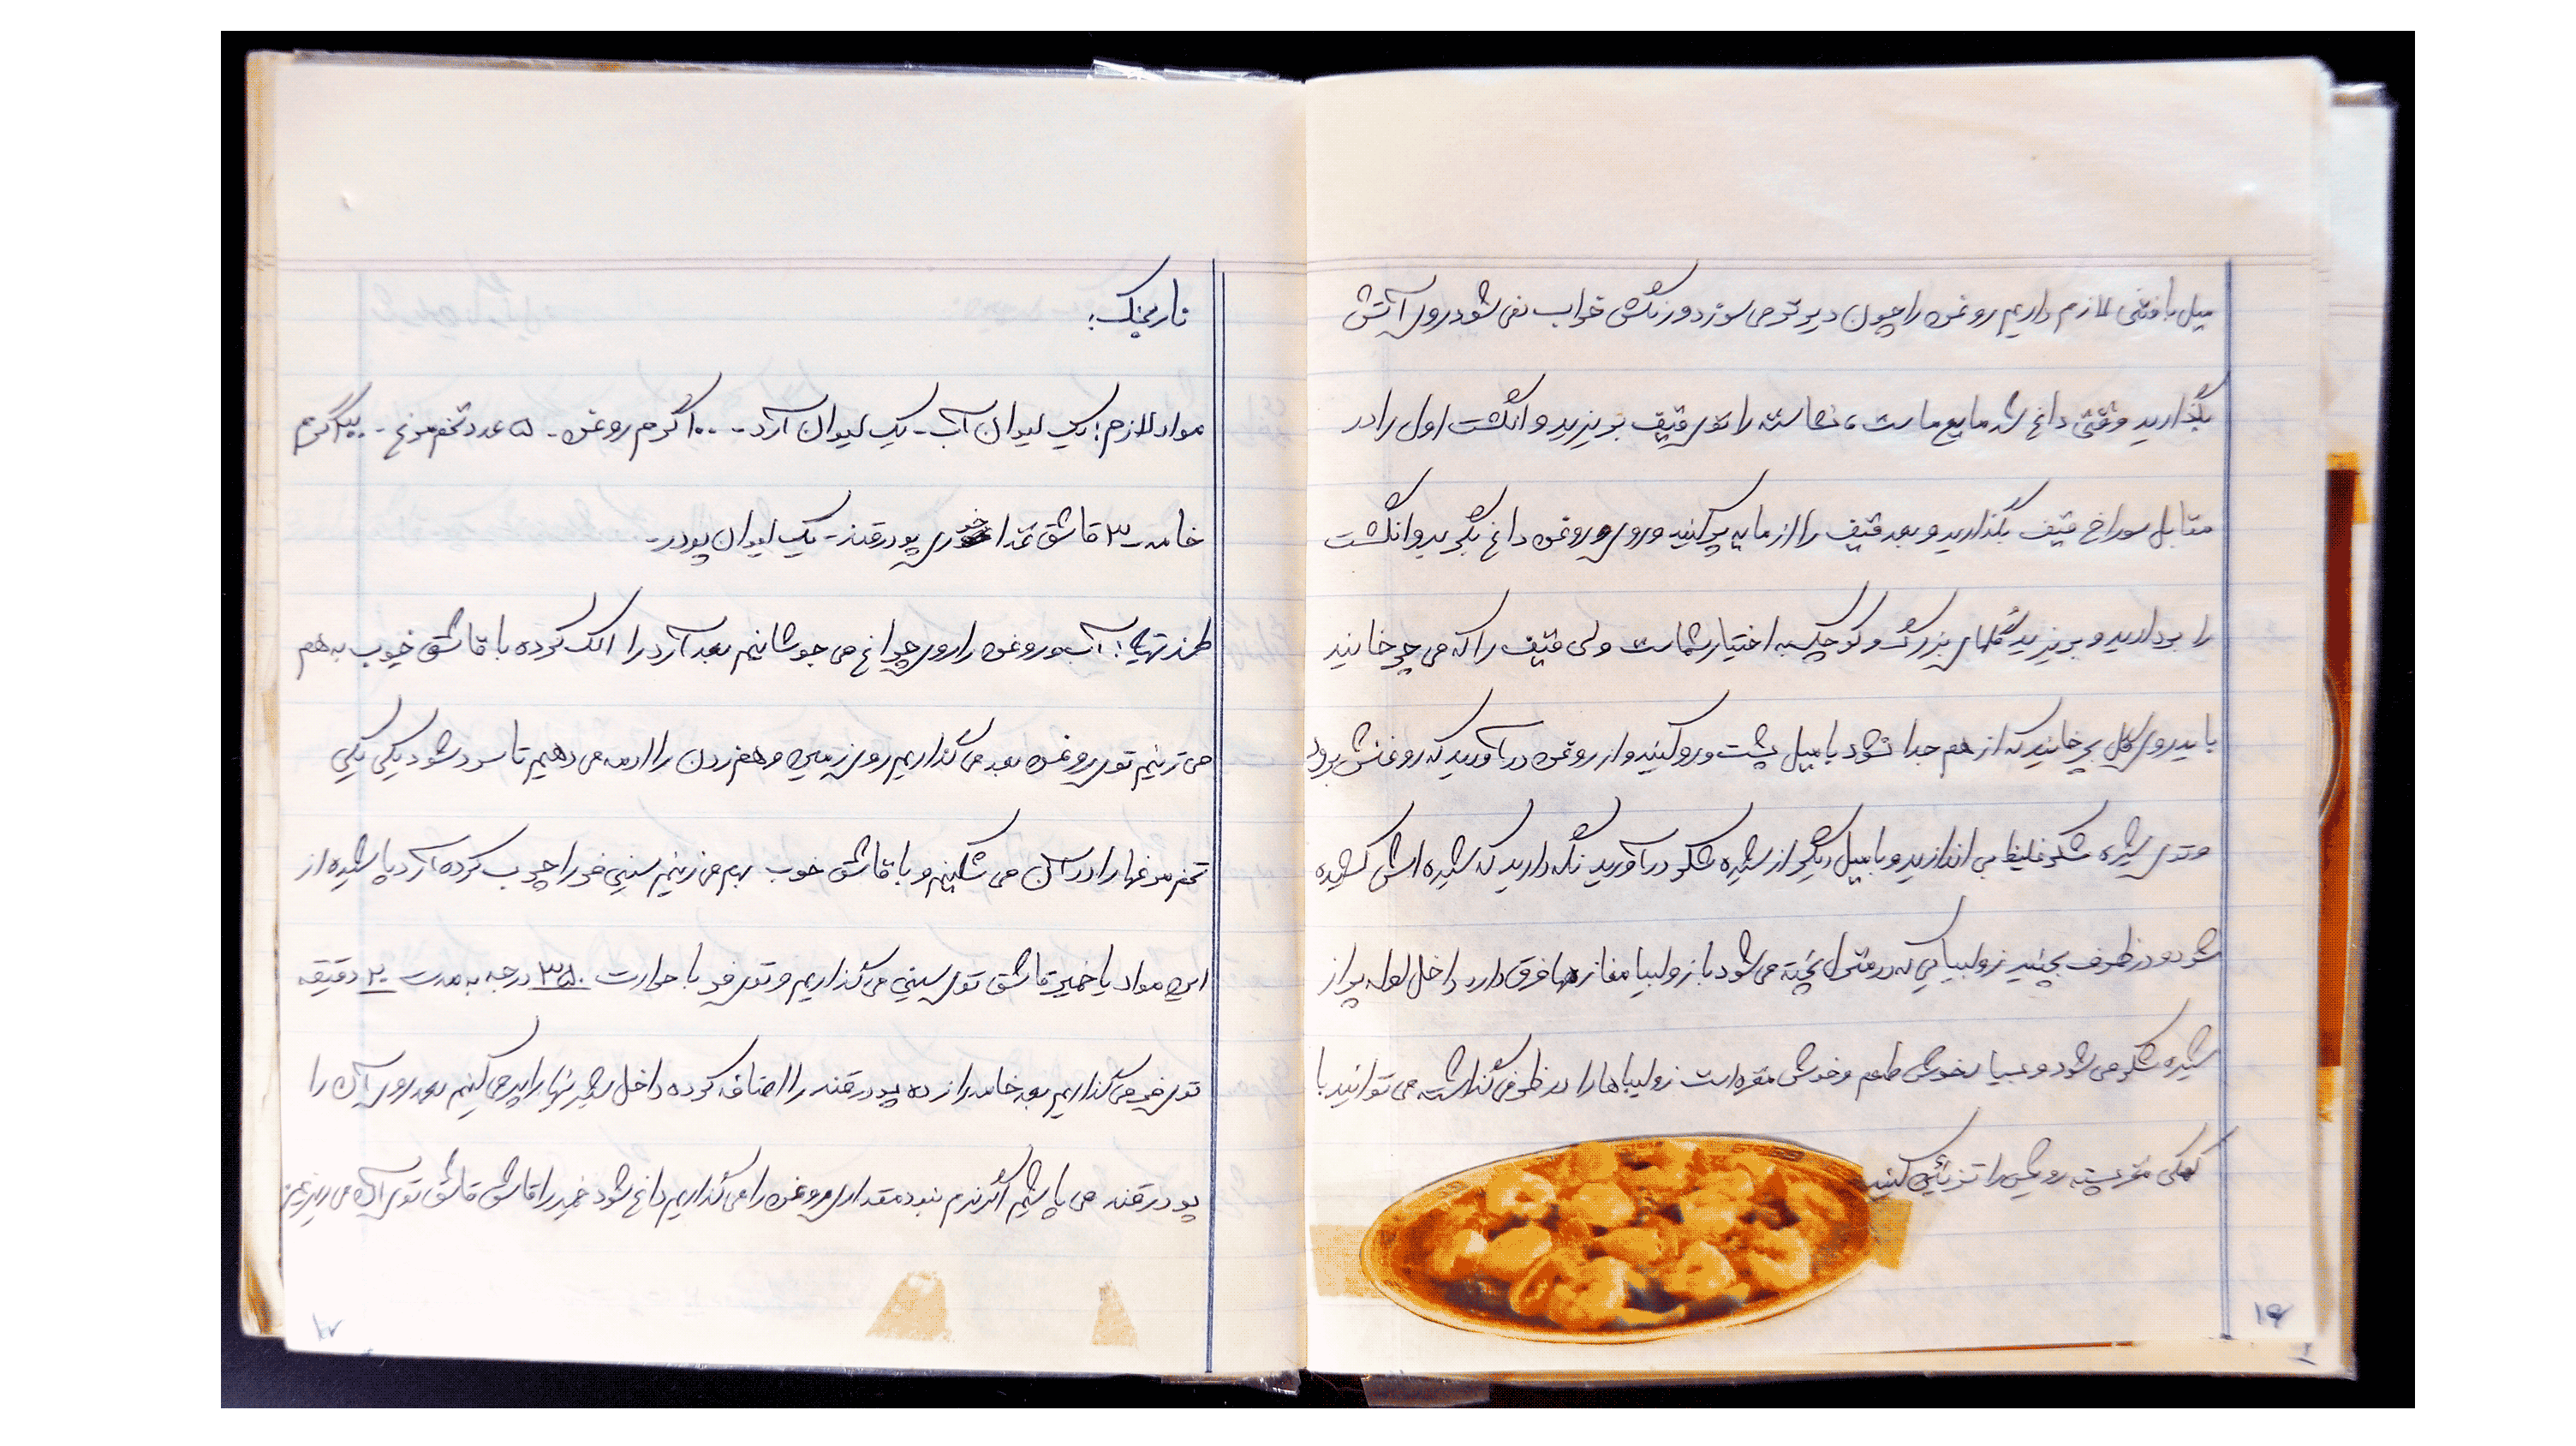 میل بافتنی لازم داریم روغن را چون دیرتر می سوزد و رنگش خراب نمی شود روی آتش
بگذارید وقتی داغ شد مایع ماست، نشاسته را توی قیف بریزید و انگشت اول را در
مقابل سوراخ قیف بگذارید و بعد قیف را از مایه پر کنید و روی روغن داغ بگیرید و انگشت
را بردارید و بریزید گلهای بزرگ و کوچک به اختیار شماست ولی قیف را که می چرخانید
باید روی گل بچرخانید که از هم جدا نشود با میل پشت و رو کنید و از روغن درآورید که روغنش برود
و توی شیره شکر غلیظ بی اندازید و با میل دیگر از شیره شکر درآورید نگه دارید که شیره اش کشیده
شود و در ظرف بچینید زولبیایی که در منزل پخته می شود با زولبیا مغازه ها فرق دارد داخل لوله پر از
شیره شکر می شود و بسیار خوش طعم و خوش مزه است زولبیاها را در ظرفی گذاشته می توانید با
کمی مغز پسته رویش را تزئین کنید
۱۶
نارنجک:
مواد لازم: یک لیوان آب - یک لیوان آرد - ۱۰۰ گرم روغن - ۵ عدد تخم مرغ - گرم
خامه - ۳ قاشق غذا خوری پودر قند - یک لیوان پودر -
طرز تهیه: آب و روغن را روی چراغ می جوشانیم بعد آرد را الک کرده با قاشق خوب به هم
می زنیم توی روغن بعد می گذاریم روی زمین و هم زدن را ادامه می دهیم تا سرد شود یکی یکی
تخم مرغها را در آن می شکنیم و با قاشق خوب بهم می زنیم سینی فر را چرب کرده آرد پاشیده از
این مواد یا خمیر قاشق قاشق توی سینی می گذاریم و توی فر با حرارت ۳۵۰ درجه به مدت ۲۰ دقیقه
توی فر می گذاریم بعد خامه را زده پودر قند را اضافه کرده داخل را پر می کنیم بعد روی آن را
پودر قند می پاشیم اگر فر نبود مقداری روغن را می گذاریم داغ شود خمیر را قاشق قاشق توی آن می ریزیم